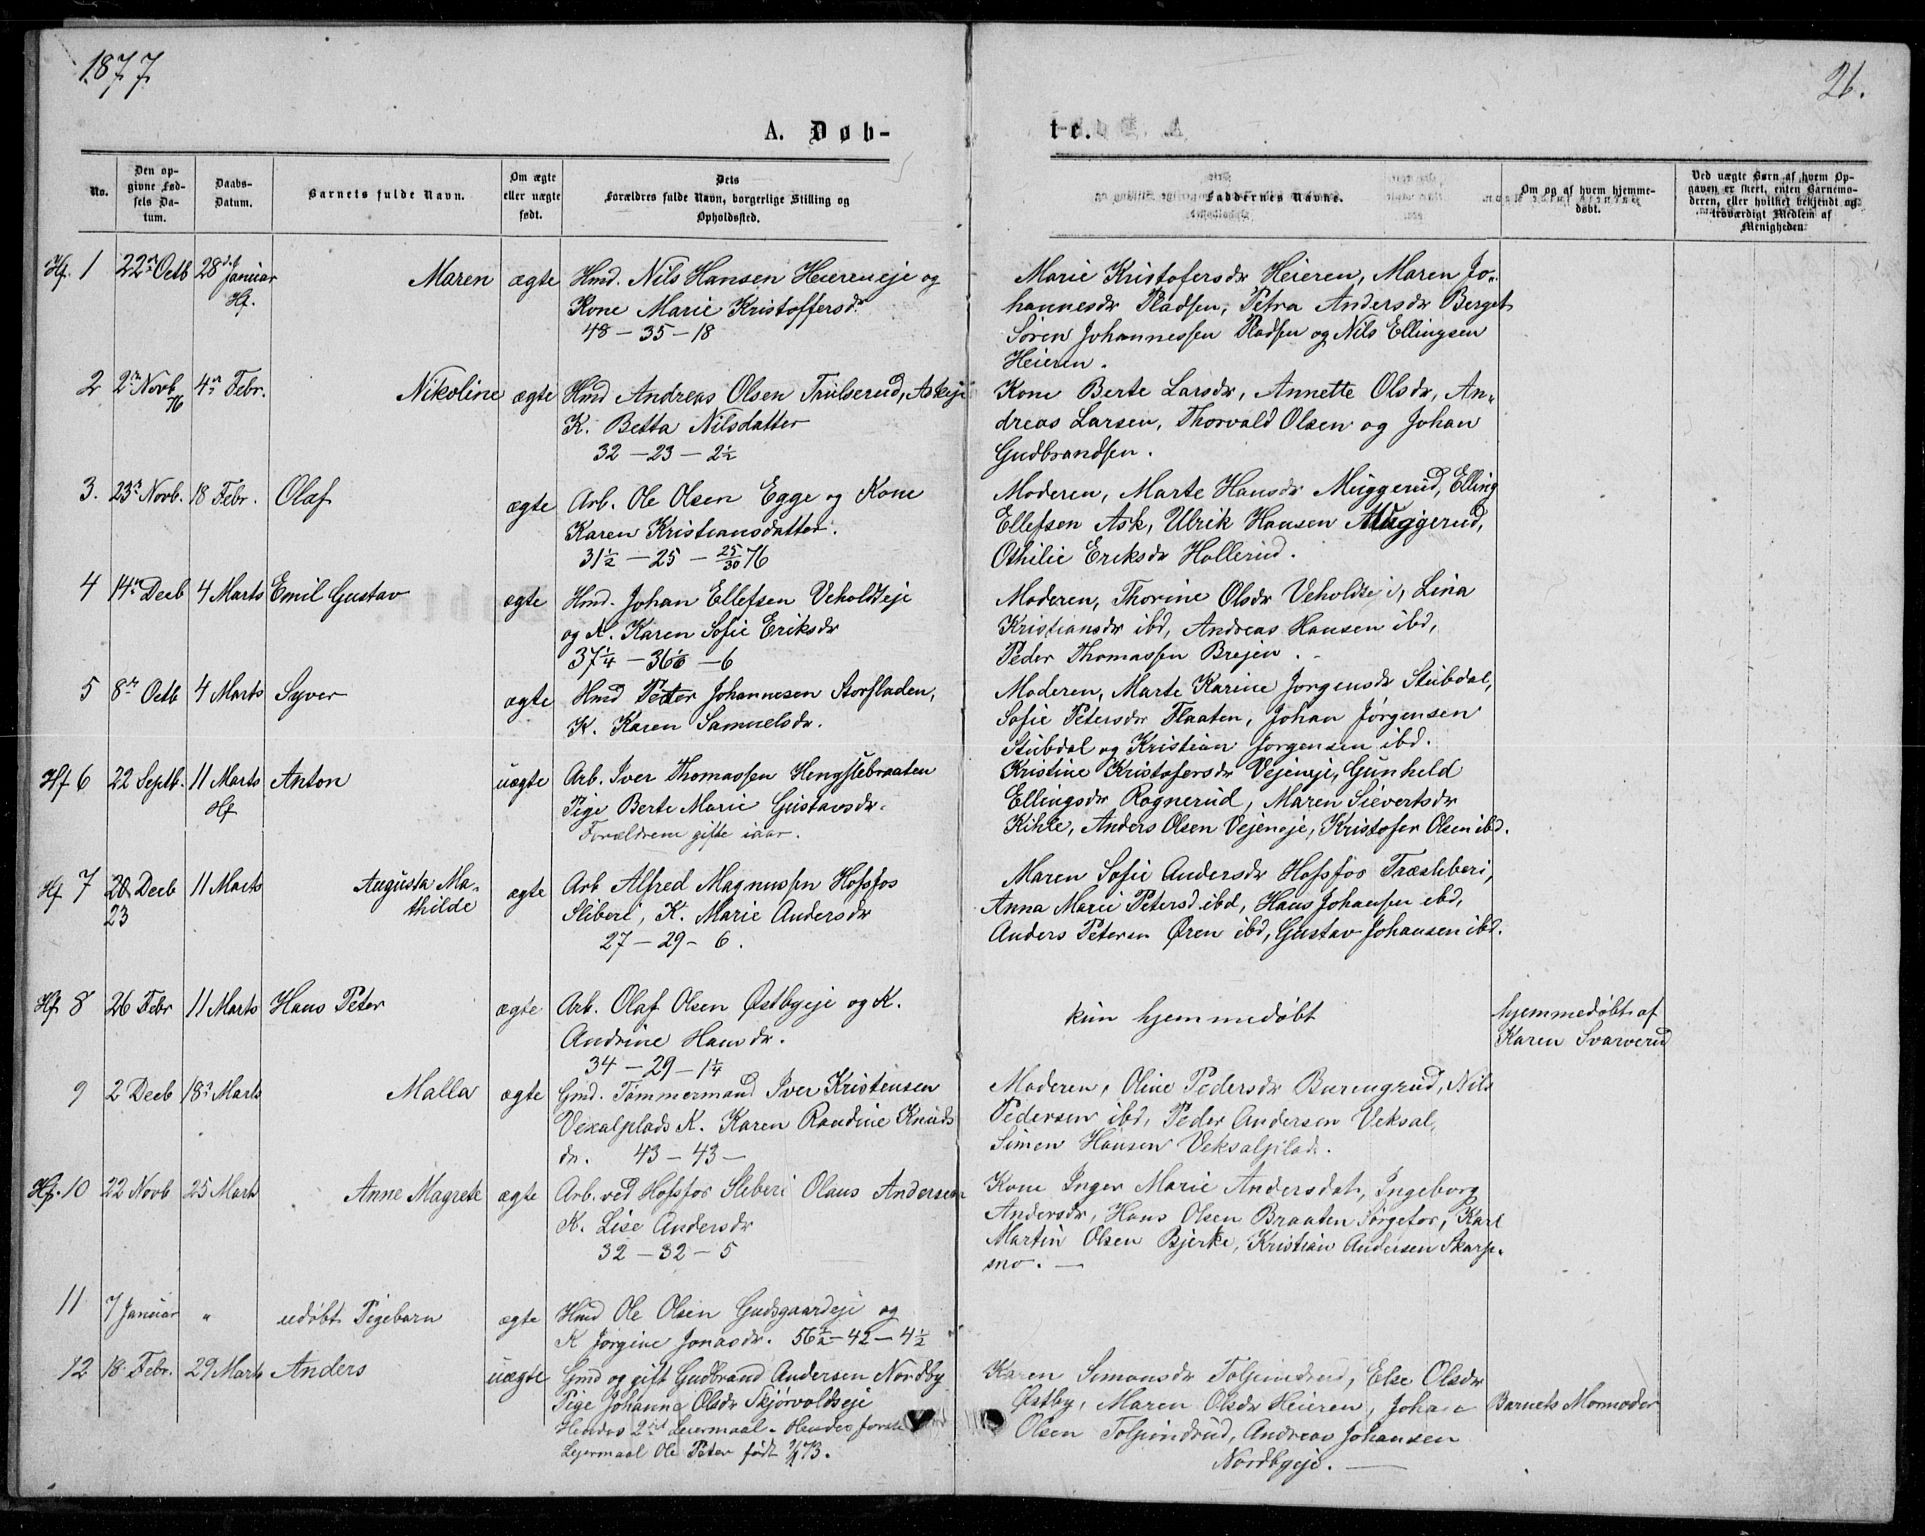 1877
26.
A. Døb-
te.
No.
Den op-
givne Fød-
sels Da-
tum.
Daabs-
Datum.
Barnets fulde Navn.
Om ægte
eller uægte
født.
Dets
Forældres fulde Navn, borgerlige Stilling og
Opholdssted.
Faddernes Navne.
Om og af hvem hjemme-
døbt.
Ved uægte Børn af hvem Op-
gaven er skeet, enten Barnemo-
deren, eller hvilket bekjendt og
troværdigt Medlem af
Menigheden.
Hf. 1 22de Octb 28de Januar Hf. Maren ægte Hmd. Nils Hansen Heiereneje og
Kone Marie Kristoffersdr
48 - 35 - 18
Marie Kristofersdr Heieren, Maren Jo-
hannesdr Pladsen, Petra Andersdr Berget
Sören Johannessen Pladsen og Nils Ellingsen
Heieren.
2 2n Novb 76 4n Febr. Nikoline ægte Hmd Andreas Olsen Trulserud, Askeje
K. Betta Nilsdatter
32 - 23 - 2½
Kone Berte Larsdr, Annette Olsdr, An-
dreas Larsen, Thorvald Olsen og Johan
Gudbrandsen.
3. 23n Novb. 18 Febr. Olaf ægte Arb. Ole Olsen Egge og Kone
Karen Kristiansdatter.
31½ - 25 - 25/30 76
Moderen, Marte Hansdr Muggerud, Elling
Ellefsen Ask, Ulrik Hansen Muggerud,
Othilie Eriksdr Hollerud.
4 14n Decb 4 Marts Emil Gustav ægte Hmd. Johan Ellefsen Veholdteje
og K. Karen Sofie Eriksdr
37¼ - 36⅙ - 6
Moderen, Thorine Olsdr Veholdtej, Lina
Kristiansdr ibd, Andreas Hansen ibd,
Peder Thomassen Brejen.
5 8n Octb 4 Marts Syver ægte Hmd Peter Johannesen Storfladen,
K. Karen Samuelsdr.
Moderen, Marte Karine Jorgensdr Stubdal,
Sofie Petersdr Flaaten, Johan Jørgensen
Stubdal og Kristian Jorgensen ibd.
Hf 6 22 Septb. 11 Marts Hf Anton uægte Arb. Iver Thomassen Hengslebraaten
Pige Berte Marie Gustavsdr.
Forældrene gifte iaar.
Kristine Kristofersdr Vejeneje, Gunhild
Ellingsdr Rognerud, Maren Sievertsdr
Kihle, Anders Olsen Vejeneje, Kristofer Olsen ibd.
Hf 7 20 Decb 23 11 Marts Augusta Ma-
thilde ægte Arb Alfred Magnussen Hofsfos
Sliberi, K. Marie Andersdr
27 - 29 - 6.
Maren Sofie Andersdr Hofsfos Træsliberi,
Anna Marie Petersd ibd, Hans Johansen ibd,
Anders Petersen Øren ibd, Gustav Johansen ibd.
Hf 8 26 Febr 11 Marts Hans Peter ægte Arb. Olaf Olsen Østbyeje og K.
Andrine Hansdr.
34 - 29 - 1¼
kun hjemmedøbt
hjemmedøbt af
Karen Svarverud
9 2 Decb 18n Marts Malla ægte Gmd. Tømmermand Iver Kristensen
Vexalplads K. Karen Randine Knuds
dr. 43 - 43 -
Moderen, Oline Pedersdr Burengrud, Nils
Pedersen ibd, Peder Andersen Veksal,
Simen Hansen Veksalplads.
Hf. 10 22 Novb 25 Marts Anne Magrete ægte Arb. ved Hofsfos Sliberi Olaus Andersen
K. Lise Andersdr
32 - 32 - 5
Kone Inger Marie Andersdat, Ingeborg
Andersdr, Hans Olsen Braaten Sørgefos, Karl
Martin Olsen Bjerke, Kristian Andersen Skarp-
sno. -
11 7 Januar " udøbt Pigebarn ægte Hmd Ole Olsen Gudsgaardeje og
K Jørgine Jonasdr. 56½ - 42 - 4½
12 18 Febr. 29 Marts Anders uægte Gmd og gift Gudbrand Andersen Nordby
Pige Johanna Olsdr Skjørvoldseje
Hendes 2det Leiermaal. Hendes første
Lejermaal Ole Peter født 73.
Karen Simonsdr Tolpinrud, Else Olsdr
Østby, Maren Olsdr Heieren, Johan
Olsen Tolpinrud, Andreas Johansen
Nordbyeje.
Barnets Mormoder